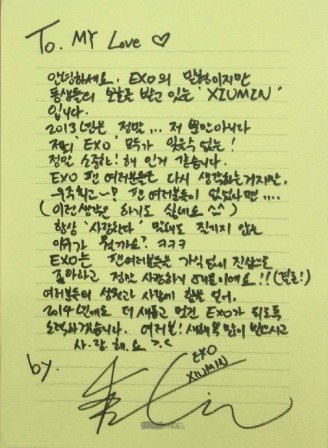 To. MY Love ♡
안녕하세요. EXO의 맏형이지만
동생들의 보호를 받고 있는 "XIUMIN"
입니다.
2013년은 정말... 저 뿐만아니라
저희 "EXO" 모두가 잊을수 없는!
정말 소중한! 해 인거 같습니다.
EXO 팬 여러분들은 다시 생각하는거지만,
우주최고~! 팬 여러분들이 없었다면....
(이런생각은 하기도 싫네요 ^^)
항상 "사랑한다" 말해도 질리지 않는
이유가 뭔가요? ㅋㅋㅋ
EXO는 팬여러분들은 가식없이 진심으로
좋아하고 정말 사랑하기 때문이에요!! (결론!)
여러분들의 성원과 사랑에 힘을 얻어,
2014년에도 더 새롭고 멋진 EXO가 되도록
노력하겠습니다. 여러분! 새해복 많이 받으시고
사.랑.해.요
by.
EXO
XIUMIN